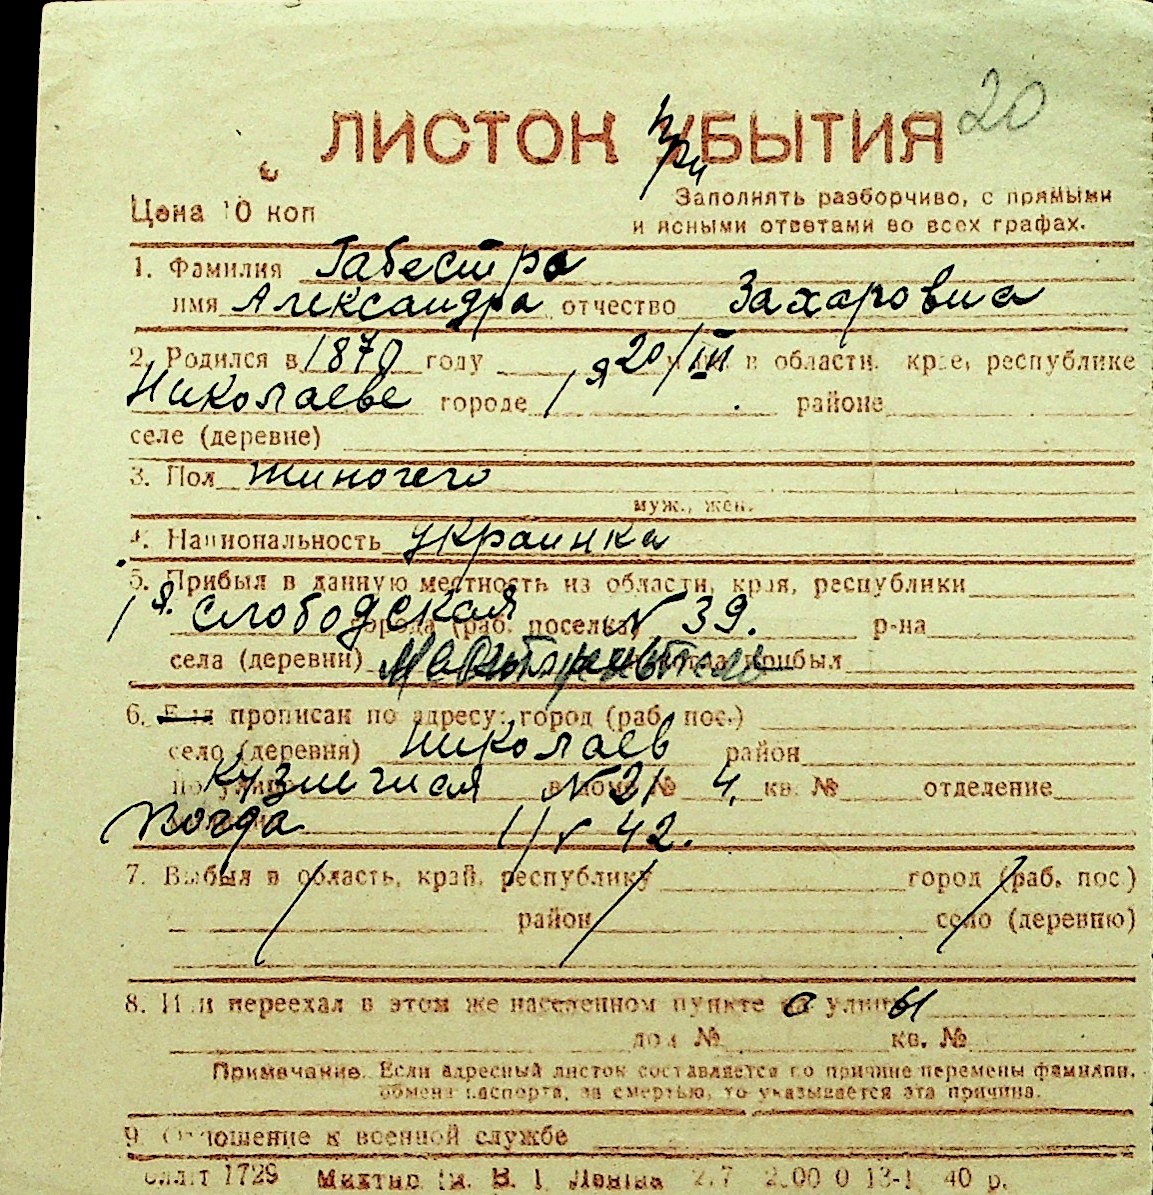 20
ЛИСТОК при УБЫТИЯ
Цена 10 коп
Заполнять разборчиво, с прямыми
и ясными ответами во всех графах.
1. Фамилия Габестро
имя Александра отчество Захаровна
2. Родился в 1870 году 20/III в области, крае, республике
Николаеве городе районе
селе (деревне)
3. Пол
муж., жен.
4. Национальность украинка
5. Прибыл в данную местность из области, края, республики
1я Слободская города (раб. поселка) № 39. р-на
села (деревни) прибыл
6. прописан по адресу: город (раб. пос.)
село (деревня) Николаев район
по улице в доме № 21 4. кв. № отделение
42.
7. Выбыл в область, край, республику город (раб. пос)
район село (деревню)
8. Или переехал в этом же населенном пункте с улицы
дом № кв. №
Примечание. Если адресный листок составляется по причине перемены фамилии,
обмена паспорта, за смертью, то указывается эта причина.
9. Отношение к военной службе
1729 В. І. Леніна 40 р.